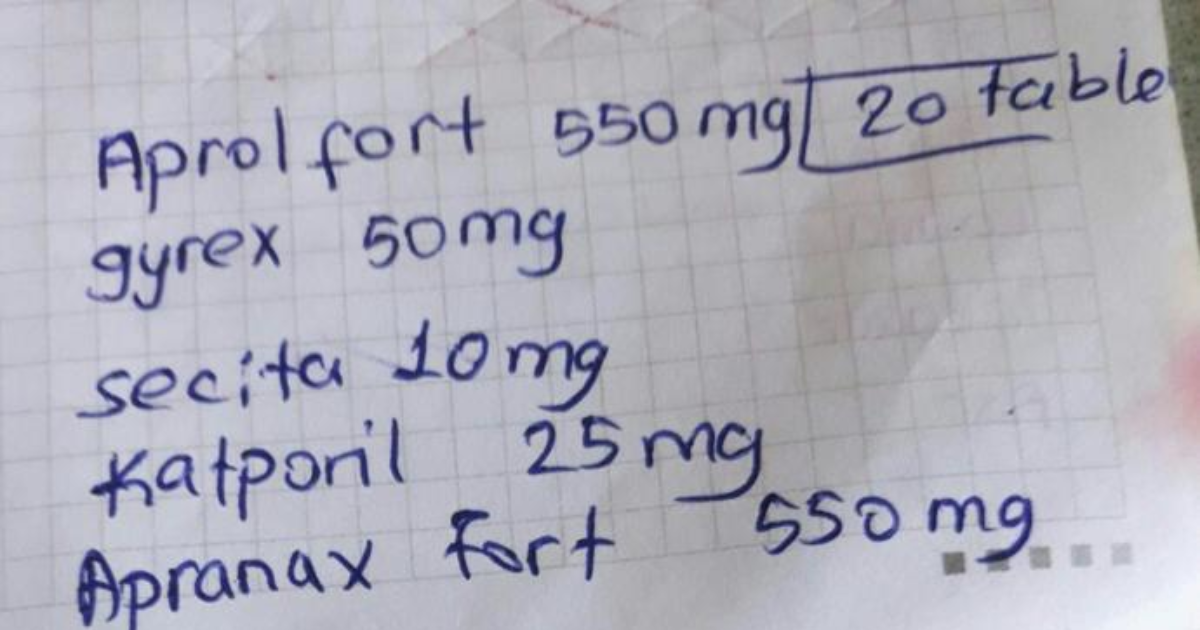 Aprol fort 550 mg 20 table
gyrex 50mg
secita 10mg
Katporil 25mg
Apranax Fort 550 mg